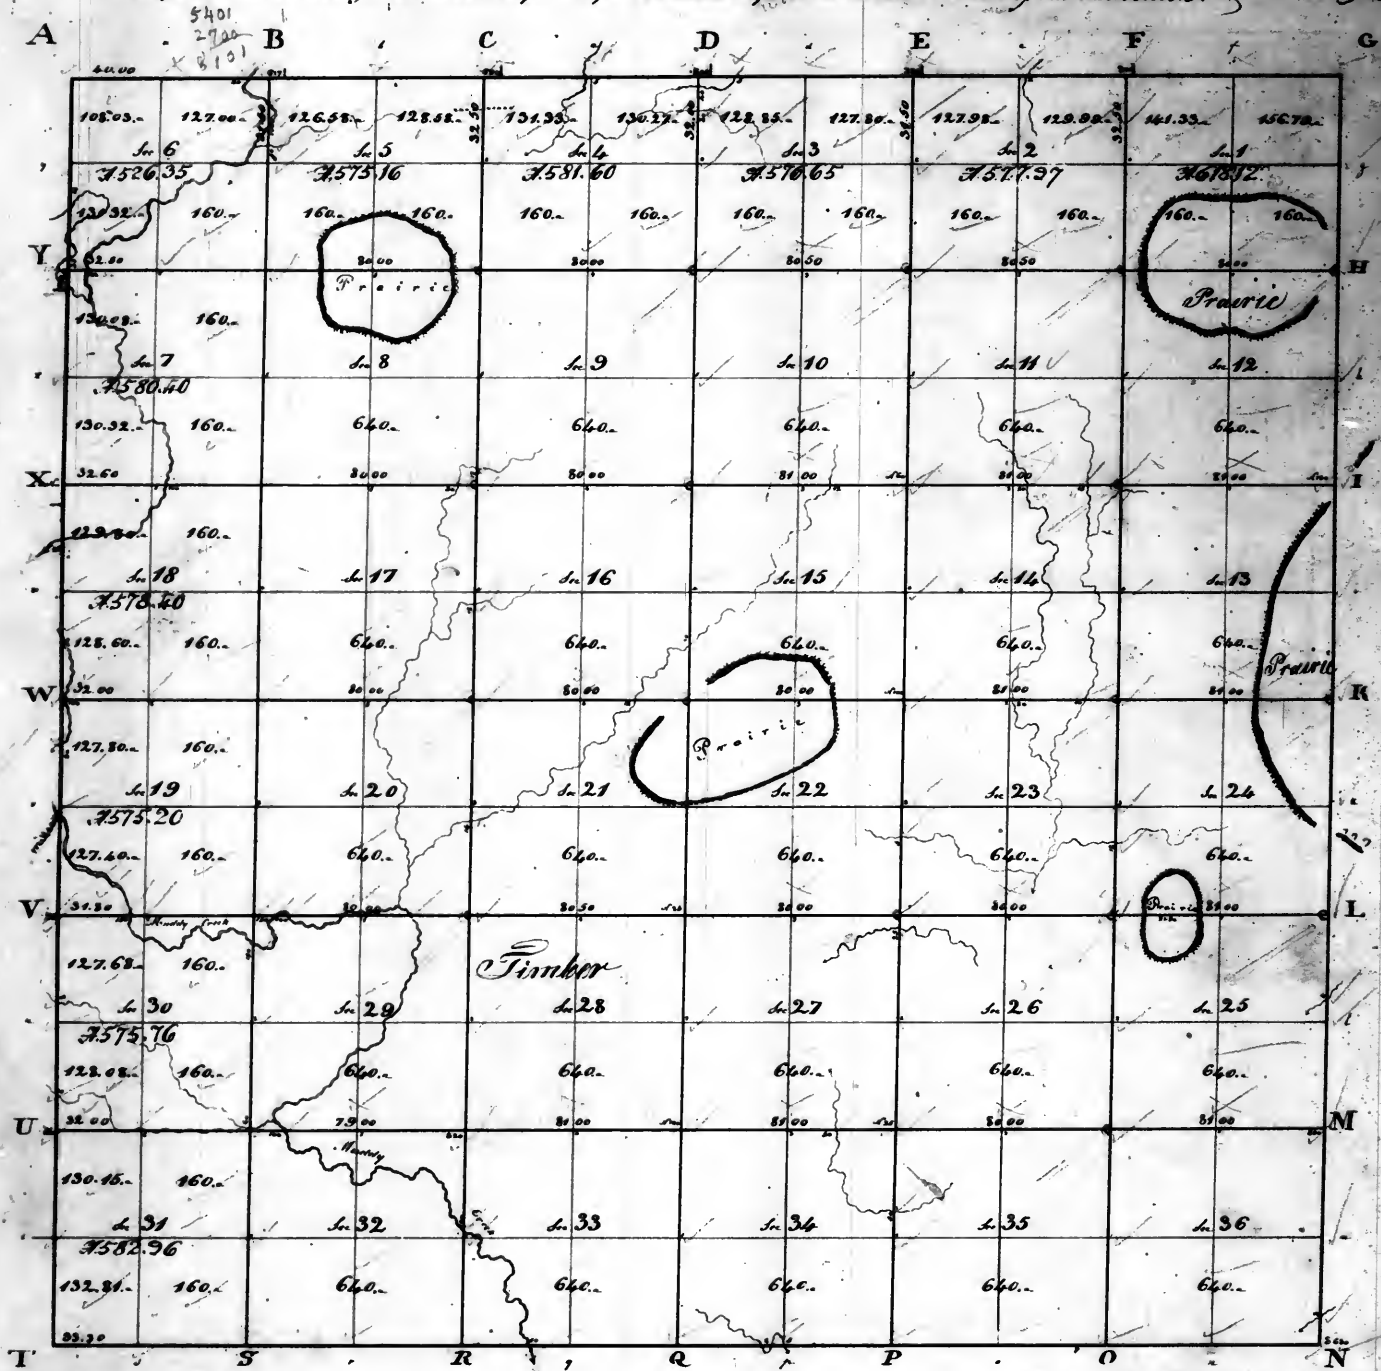 5401
2700
8101
A B C D E F G
40.00
108.03 127.00 126.58 128.58 131.33 130.27 128.85 127.80 127.98 129.98 141.33 156.79
32.50 32.50 32.50
Sec 6 Sec 5 Sec 4 Sec 3 Sec 2 Sec 1
A.526.35 A.575.16 A.581.60 A.576.65 A.577.97 A.618.12
131.32 160. 160. 160. 160. 160. 160. 160. 160. 160. 160. 160.
Y 32.60 80.00 80.00 80.50 80.50 80.00 H
Prairie Prairie
130.08 160.
Sec 7 Sec 8 Sec 9 Sec 10 Sec 11 Sec 12
A.580.40
130.32 160. 640. 640. 640. 640. 640.
X 32.60 80.00 80.00 81.00 81.00 81.00 I
129.80 160.
Sec 18 Sec 17 Sec 16 Sec 15 Sec 14 Sec 13
A.578.40
128.60 160. 640. 640. 640. 640. 640.
Prairie
W 32.00 80.00 80.00 80.00 81.00 81.00 K
127.80 160. Prairie
Sec 19 Sec 20 Sec 21 Sec 22 Sec 23 Sec 24
A.575.20
127.40 160. 640. 640. 640. 640. 640.
V 31.80 80.00 80.50 80.00 80.00 Prairie 81.00 L
Muddy Creek
127.68 160. Timber
Sec 30 Sec 29 Sec 28 Sec 27 Sec 26 Sec 25
A.575.76
128.08 160. 640. 640. 640. 640. 640.
U 32.00 79.00 81.00 81.00 80.00 81.00 M
Muddy
130.15 160.
Creek
Sec 31 Sec 32 Sec 33 Sec 34 Sec 35 Sec 36
A.582.96
132.81 160. 640. 640. 640. 640. 640.
33.30
T S R Q P O N